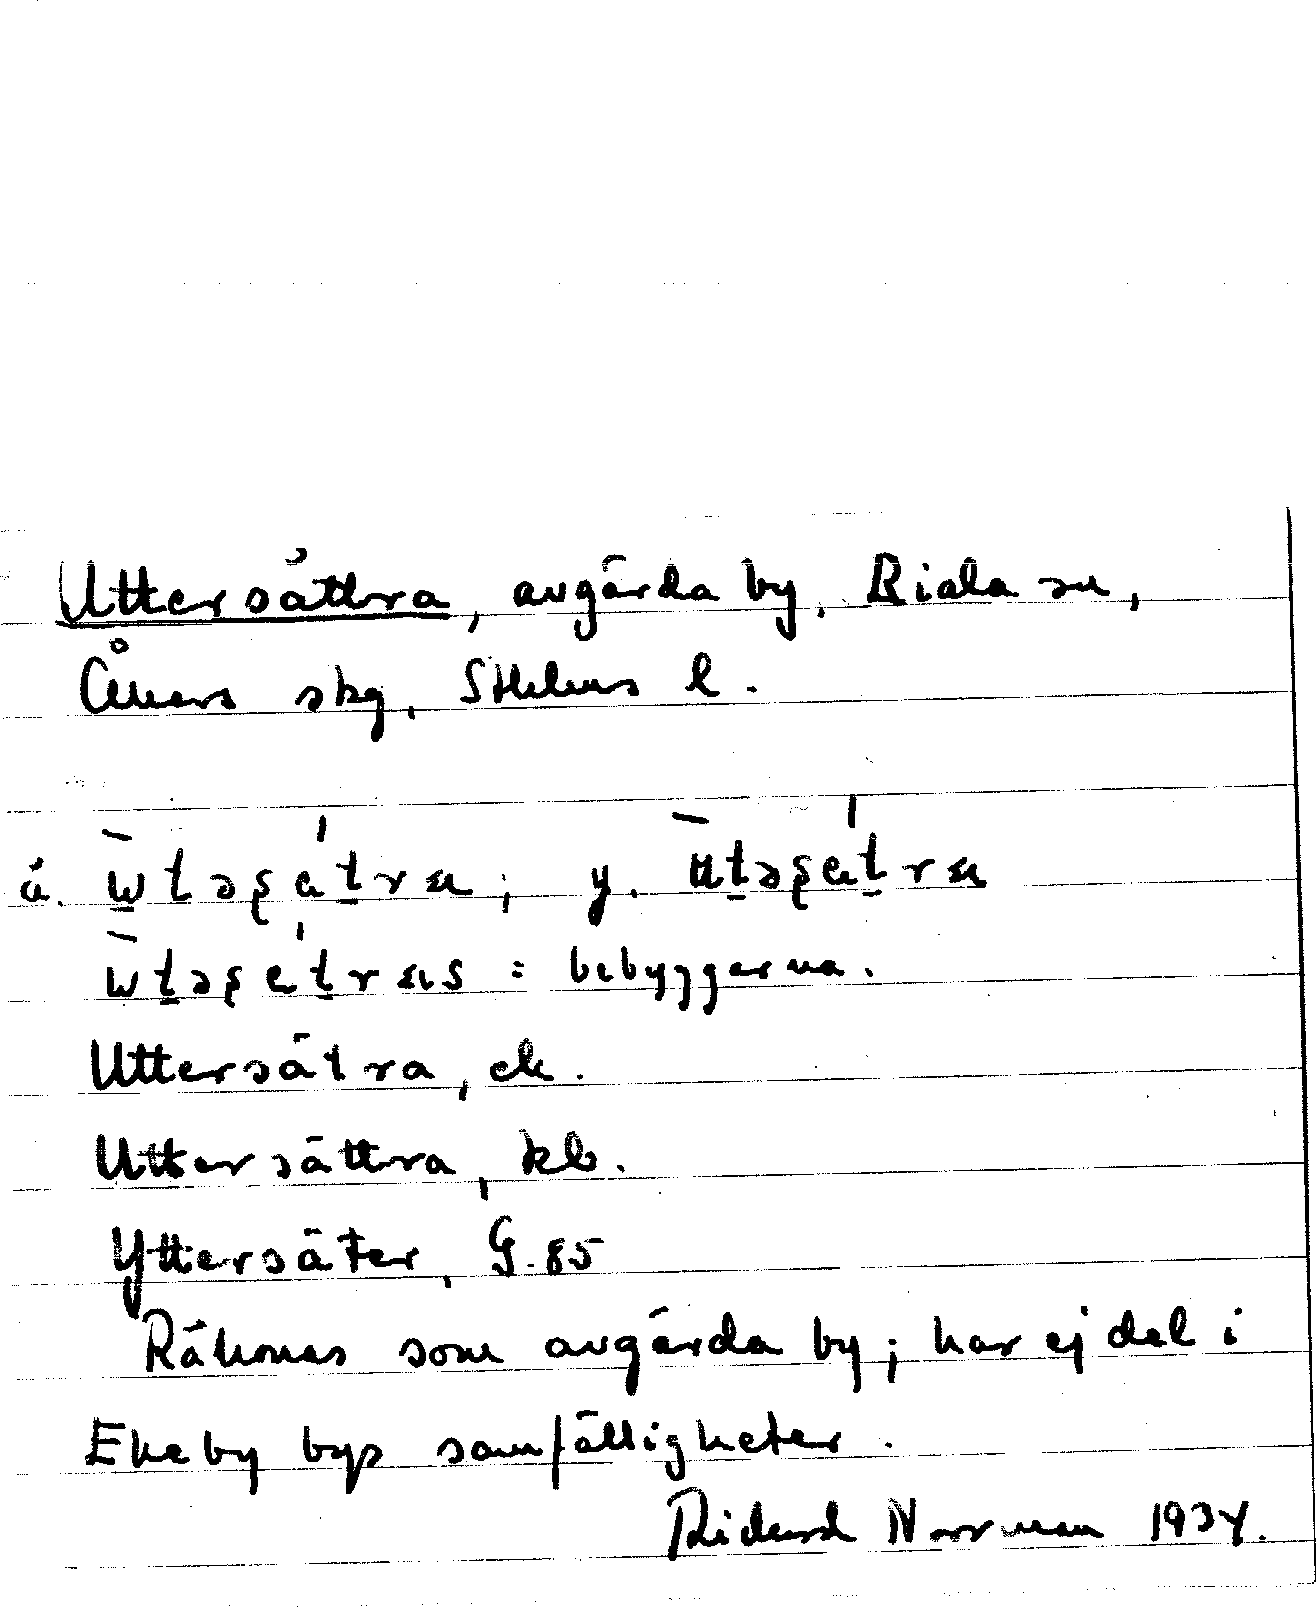 Uttersättra, avgärda by, Riala sn,
Åkers skg, Sthlms l.
ä. ; y.
= bebyggarna.
Uttersätra, ek.
Uttersättra, kb.
Yttersäter, G. 85
Räknas som avgärda by; har ej del i
Ekeby bys samfälligheter.
Rickard Norrman 1934.